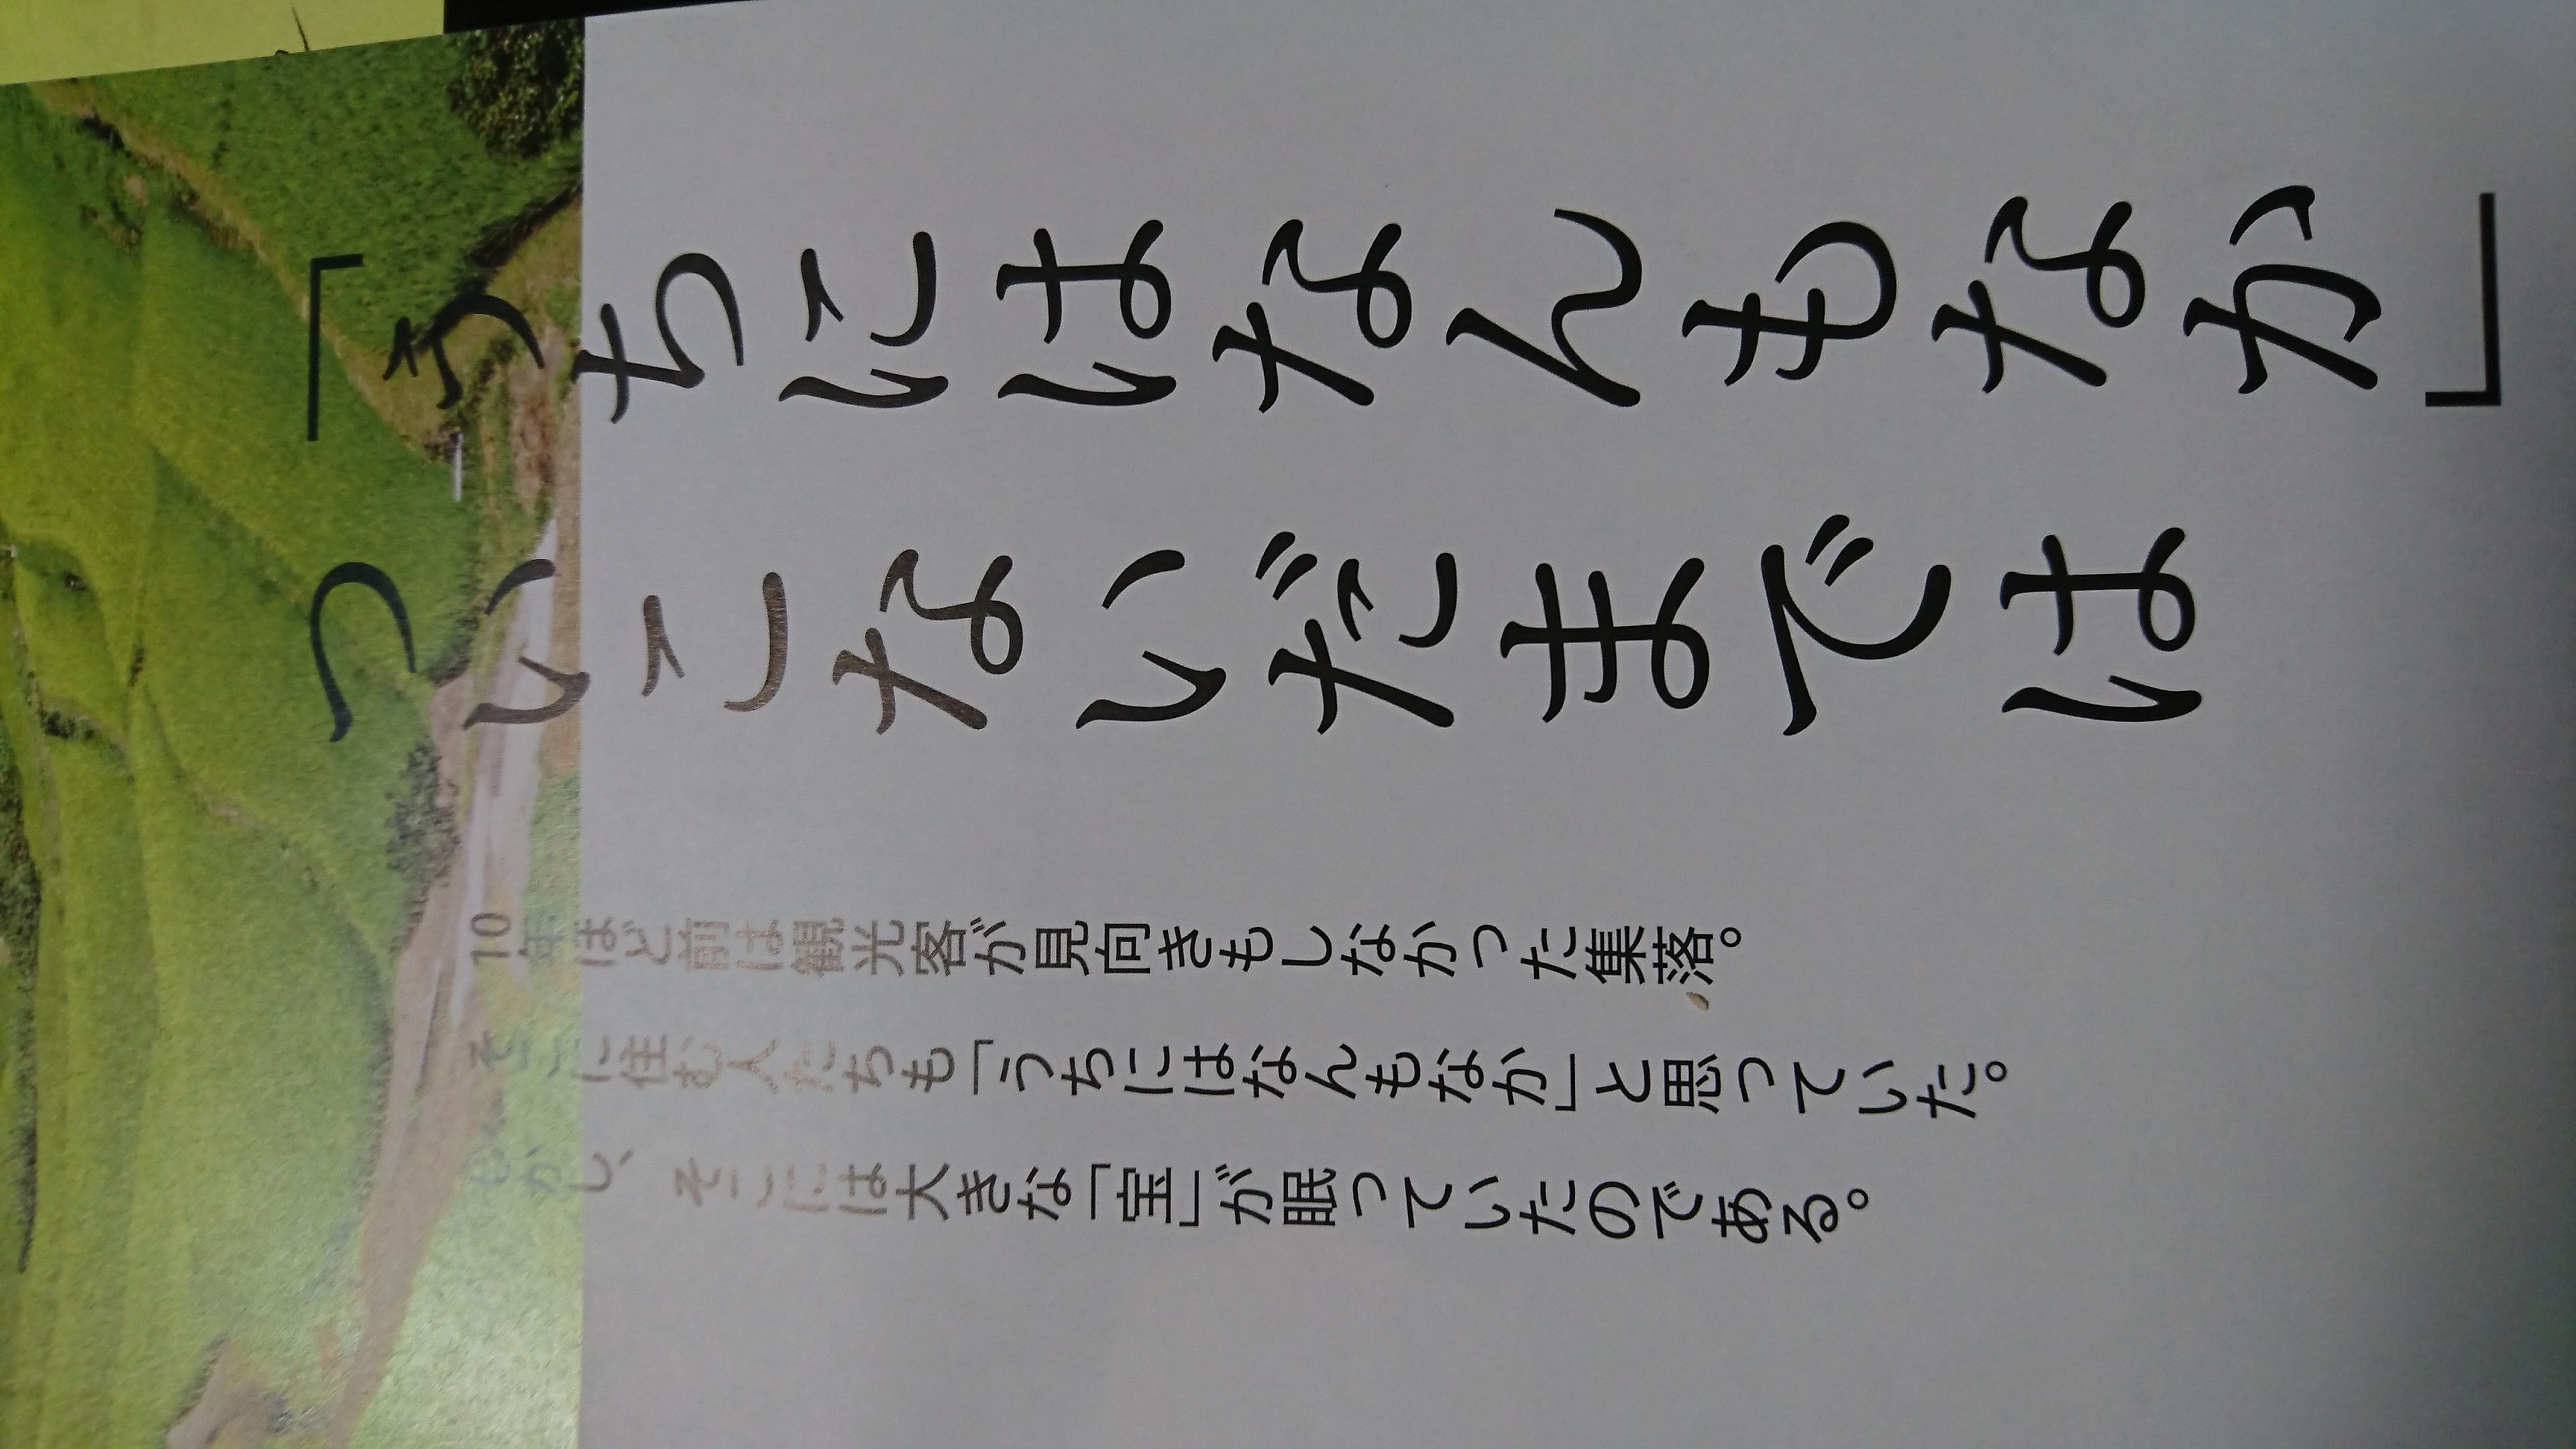 「うちにはなんもなか」
ついこないだまでは
10年ほど前は観光客が見向きもしなかった集落。
そこに住む人たちも「うちにはなんもなか」と思っていた。
しかし、そこには大きな「宝」が眠っていたのである。